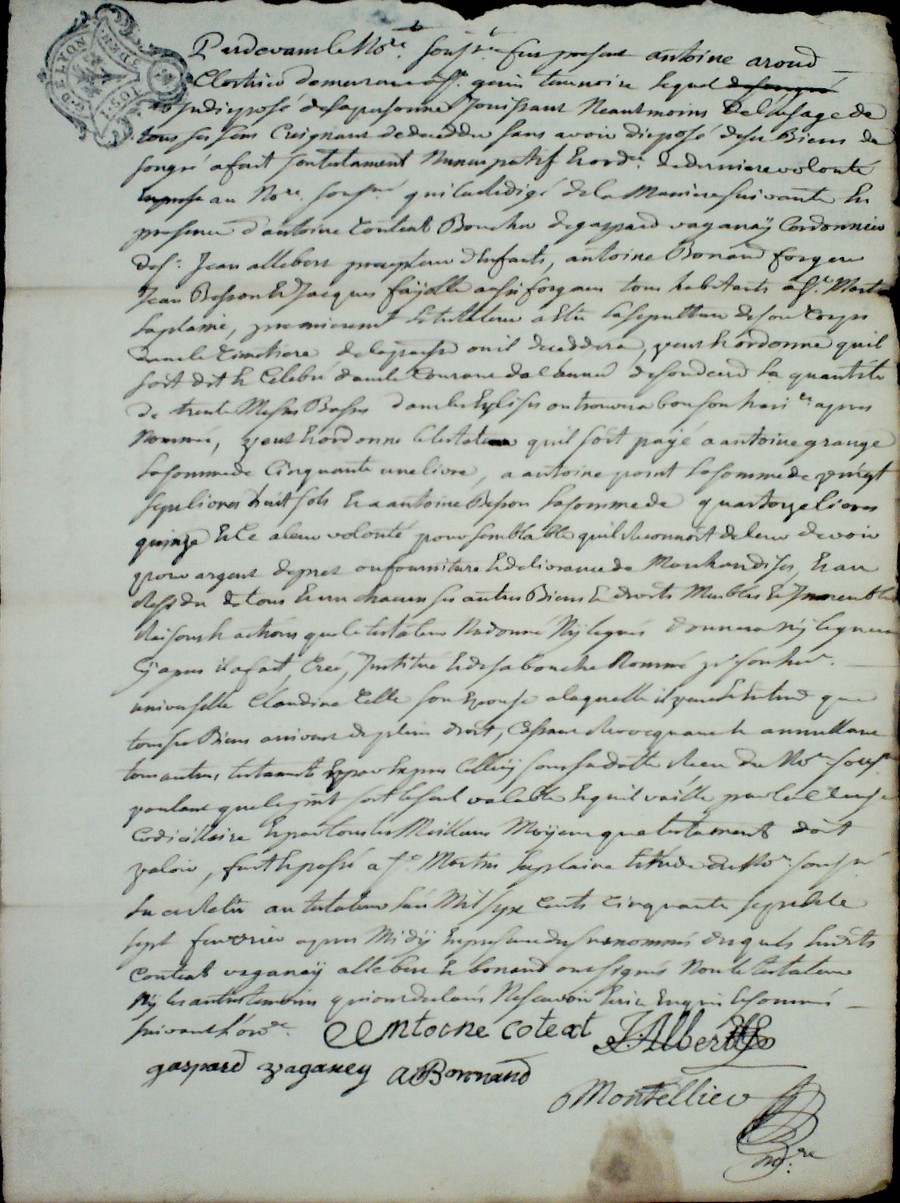 G. DE LYON
Pardevant le No.re sousg.né fut present antoine aroud
demeurant quin lequel
indisposé desapersonne Jouissant Neantmoins de l'usage de
tous ses sens Creignant dedecedder sans avoir disposé deses Biens de
songré afait sontestament Nuncupatif & ord.ce dederniere volonté
au No.re sousg.né quilaredigé de la Maniere suivante En
presence d'antoine Conteat Boucher de gaspard vaganaÿ Cordonnier
Jean allebert precepteur d'Enfants, antoine Bonand forgeur
Jean Besson & Jacques faÿolle aussi forgeurs tous habitants a S.t Martin
laplaine, premierement letestateur a Elu lasepulture deson Corps
dans le Cimetiere delaparoisse ou il deceddera, veut & ordonne quil
soit dit & Celebré dans le Courant del'année desondeced la quantité
de trente Messes Basses dans les Eglises ou trouvera bon son heri.re apres
Nommé, veut & ordonne letestateur qu'il soit payé a antoine grange
lasomme de Cinquante une livre, a antoine point lasomme de vingt
sept livres huit sols & a antoine Besson lasomme de quatorze livres
quinze & Ce aleur volonté pour semblable quil reconnoit deleur devoir
pour argent depret ou fourniture & delivrance de Marchandises, & au
Residu de tous & un chacun ses autres Biens & droits Meubles & Jmmeubles
Raisons & actions que le testateur Nadonné Nÿ legués donnera nÿ leguera
Cÿ apres ila fait, Creé, Jnstitué & desabouche Nommé
universelle Claudine Celle son Epouse alaquelle il veut & Entend que
tous ses Biens arrivent de plein droit, Cassant Revocquant & annullant
tous autres testaments
voulant que le p.nt soit leseul valable & quil vaille par
Codicillaire & par tous les Meilleurs Moÿens que testament doit
valoir, fait & passé a S.t Martin laplaine Etude du No.re sousg.né
Lu au testateur L'an Mil sept Cents Cinquante sept & le
sept fevrier apres Midÿ En presence des susnommés desquels lesdits
Conteat vaganaÿ allebert & bonand ont signés Non le testateur
Nÿ les autres temoins qui ont declarés Ne scavoir Ecrire Enquis & sommés
suivant L'or.ce
Antoine coteat J Albert
gaspard vaganey A Bonnand
Montellier
no.re